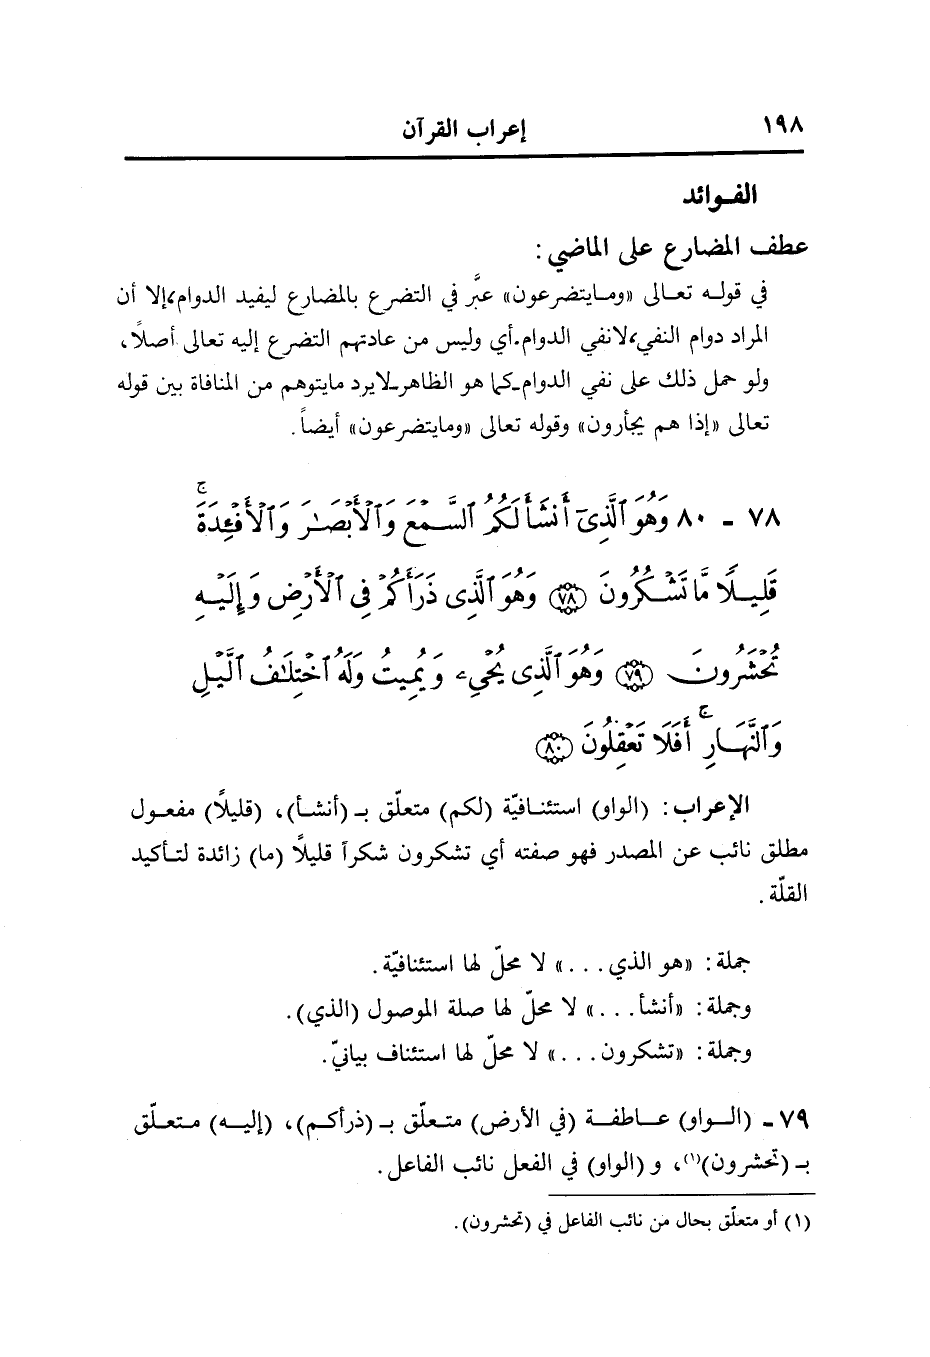 ١٩٨
إعراب القرآن
الفـوائد
عطف المضارع على الماضي :
في قولـه تعـالى «ومـايتضرعون» عبَّر في التضرع بالمضارع ليفيد الدوام،إلا أن
المراد دوام النفي،لانفي الدوام.أي وليس من عادتهم التضرع إليه تعالى أصلاً،
ولو حمل ذلك على نفي الدوام-كما هو الظاهر-لايرد مايتوهم من المنافاة بين قوله
تعالى «إذا هم يجأرون» وقوله تعالى «ومايتضرعون» أيضاً.
٧٨ - ٨٠ وَهُوَ ٱلَّذِىٓ أَنشَأَ لَكُمُ ٱلسَّمْعَ وَٱلْأَبْصَـٰرَ وَٱلْأَفْـِٔدَةَ ۚ
قَلِيـلًا مَّا تَشْـكُرُونَ ﴿٧٨﴾ وَهُوَ ٱلَّذِى ذَرَأَكُمْ فِى ٱلْأَرْضِ وَإِلَيْـهِ
تُحْشَرُونَ ﴿٧٩﴾ وَهُوَ ٱلَّذِى يُحْىِۦ وَيُمِيتُ وَلَهُ ٱخْتِلَـٰفُ ٱلَّيْلِ
وَٱلنَّهَـارِ ۚ أَفَلَا تَعْقِلُونَ ﴿٨٠﴾
الإعراب : (الواو) استئنـافيّة (لكم) متعلّق بـ (أنشـأ)، (قليلًا) مفعـول
مطلق نائب عن المصدر فهو صفته أي تشكرون شكراً قليلًا (ما) زائدة لتـأكيد
القلّة .
جملة : «هو الذي . . .» لا محلّ لها استئنافيّة .
وجملة : «أنشأ. . .» لا محلّ لها صلة الموصول (الذي).
وجملة : «تشكرون. . .» لا محلّ لها استئناف بيانيّ.
٧٩ - (الـواو) عـاطفـة (في الأرض) متعـلّق بـ (ذرأكـم)، (إليـه) متـعـلّق
بـ (تحشرون)(١)، و (الواو) في الفعل نائب الفاعل .
(١) أو متعلّق بحال من نائب الفاعل في (تحشرون).